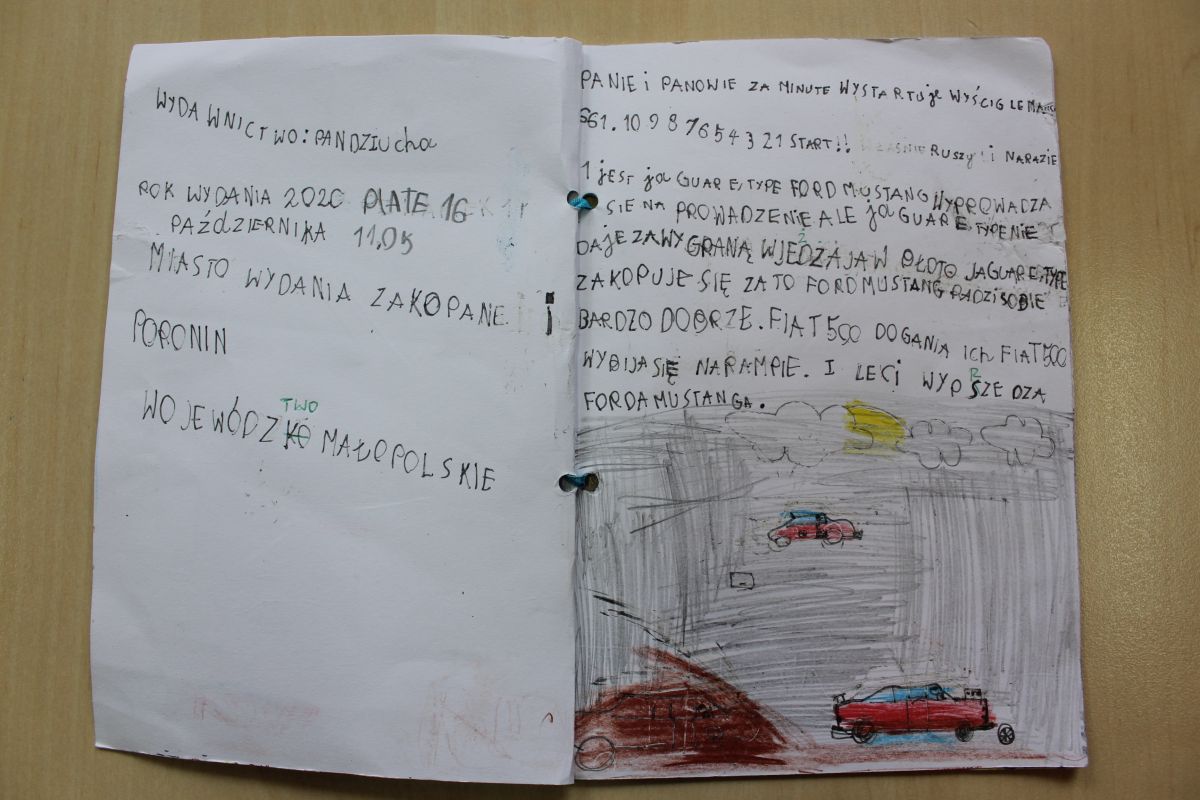 WYDAWNICTWO: PANDZIUcha
ROK WYDANIA 2020 PIĄTE 16
PAŹDZIERNIKA 11,05
MIASTO WYDANIA ZAKOPANE i
PORONIN
TWO
WOJEWÓDZKO MAŁOPOLSKIE
PANIE i PANOWIE ZA MINUTE WYSTARTUje WYŚCIG LE
661. 10 9 8 7 6 5 4 3 2 1 START!! WŁAŚNIE RUSZYli NARAZIE
1 jest jaGUAR E,TYPE FORD MUSTANG WYPROWADZA
SIE NA PROWADZENIE ALE jaGUAR E,TYPE NIE
DAJE ZA WYGRANĄ WJEDZAJA W BŁOTO JAGUAR E,TYPE
ZAKOPUJE SIĘ ZA TO FORD MUSTANG RADZI SOBIE
BARDZO DOBRZE. FIAT 500 DOGANIA ICh FIAT 500
WYBIJA SIĘ NA RAMPIE. I LECI WYPRSZEDZA
FORDA MUSTANGA.